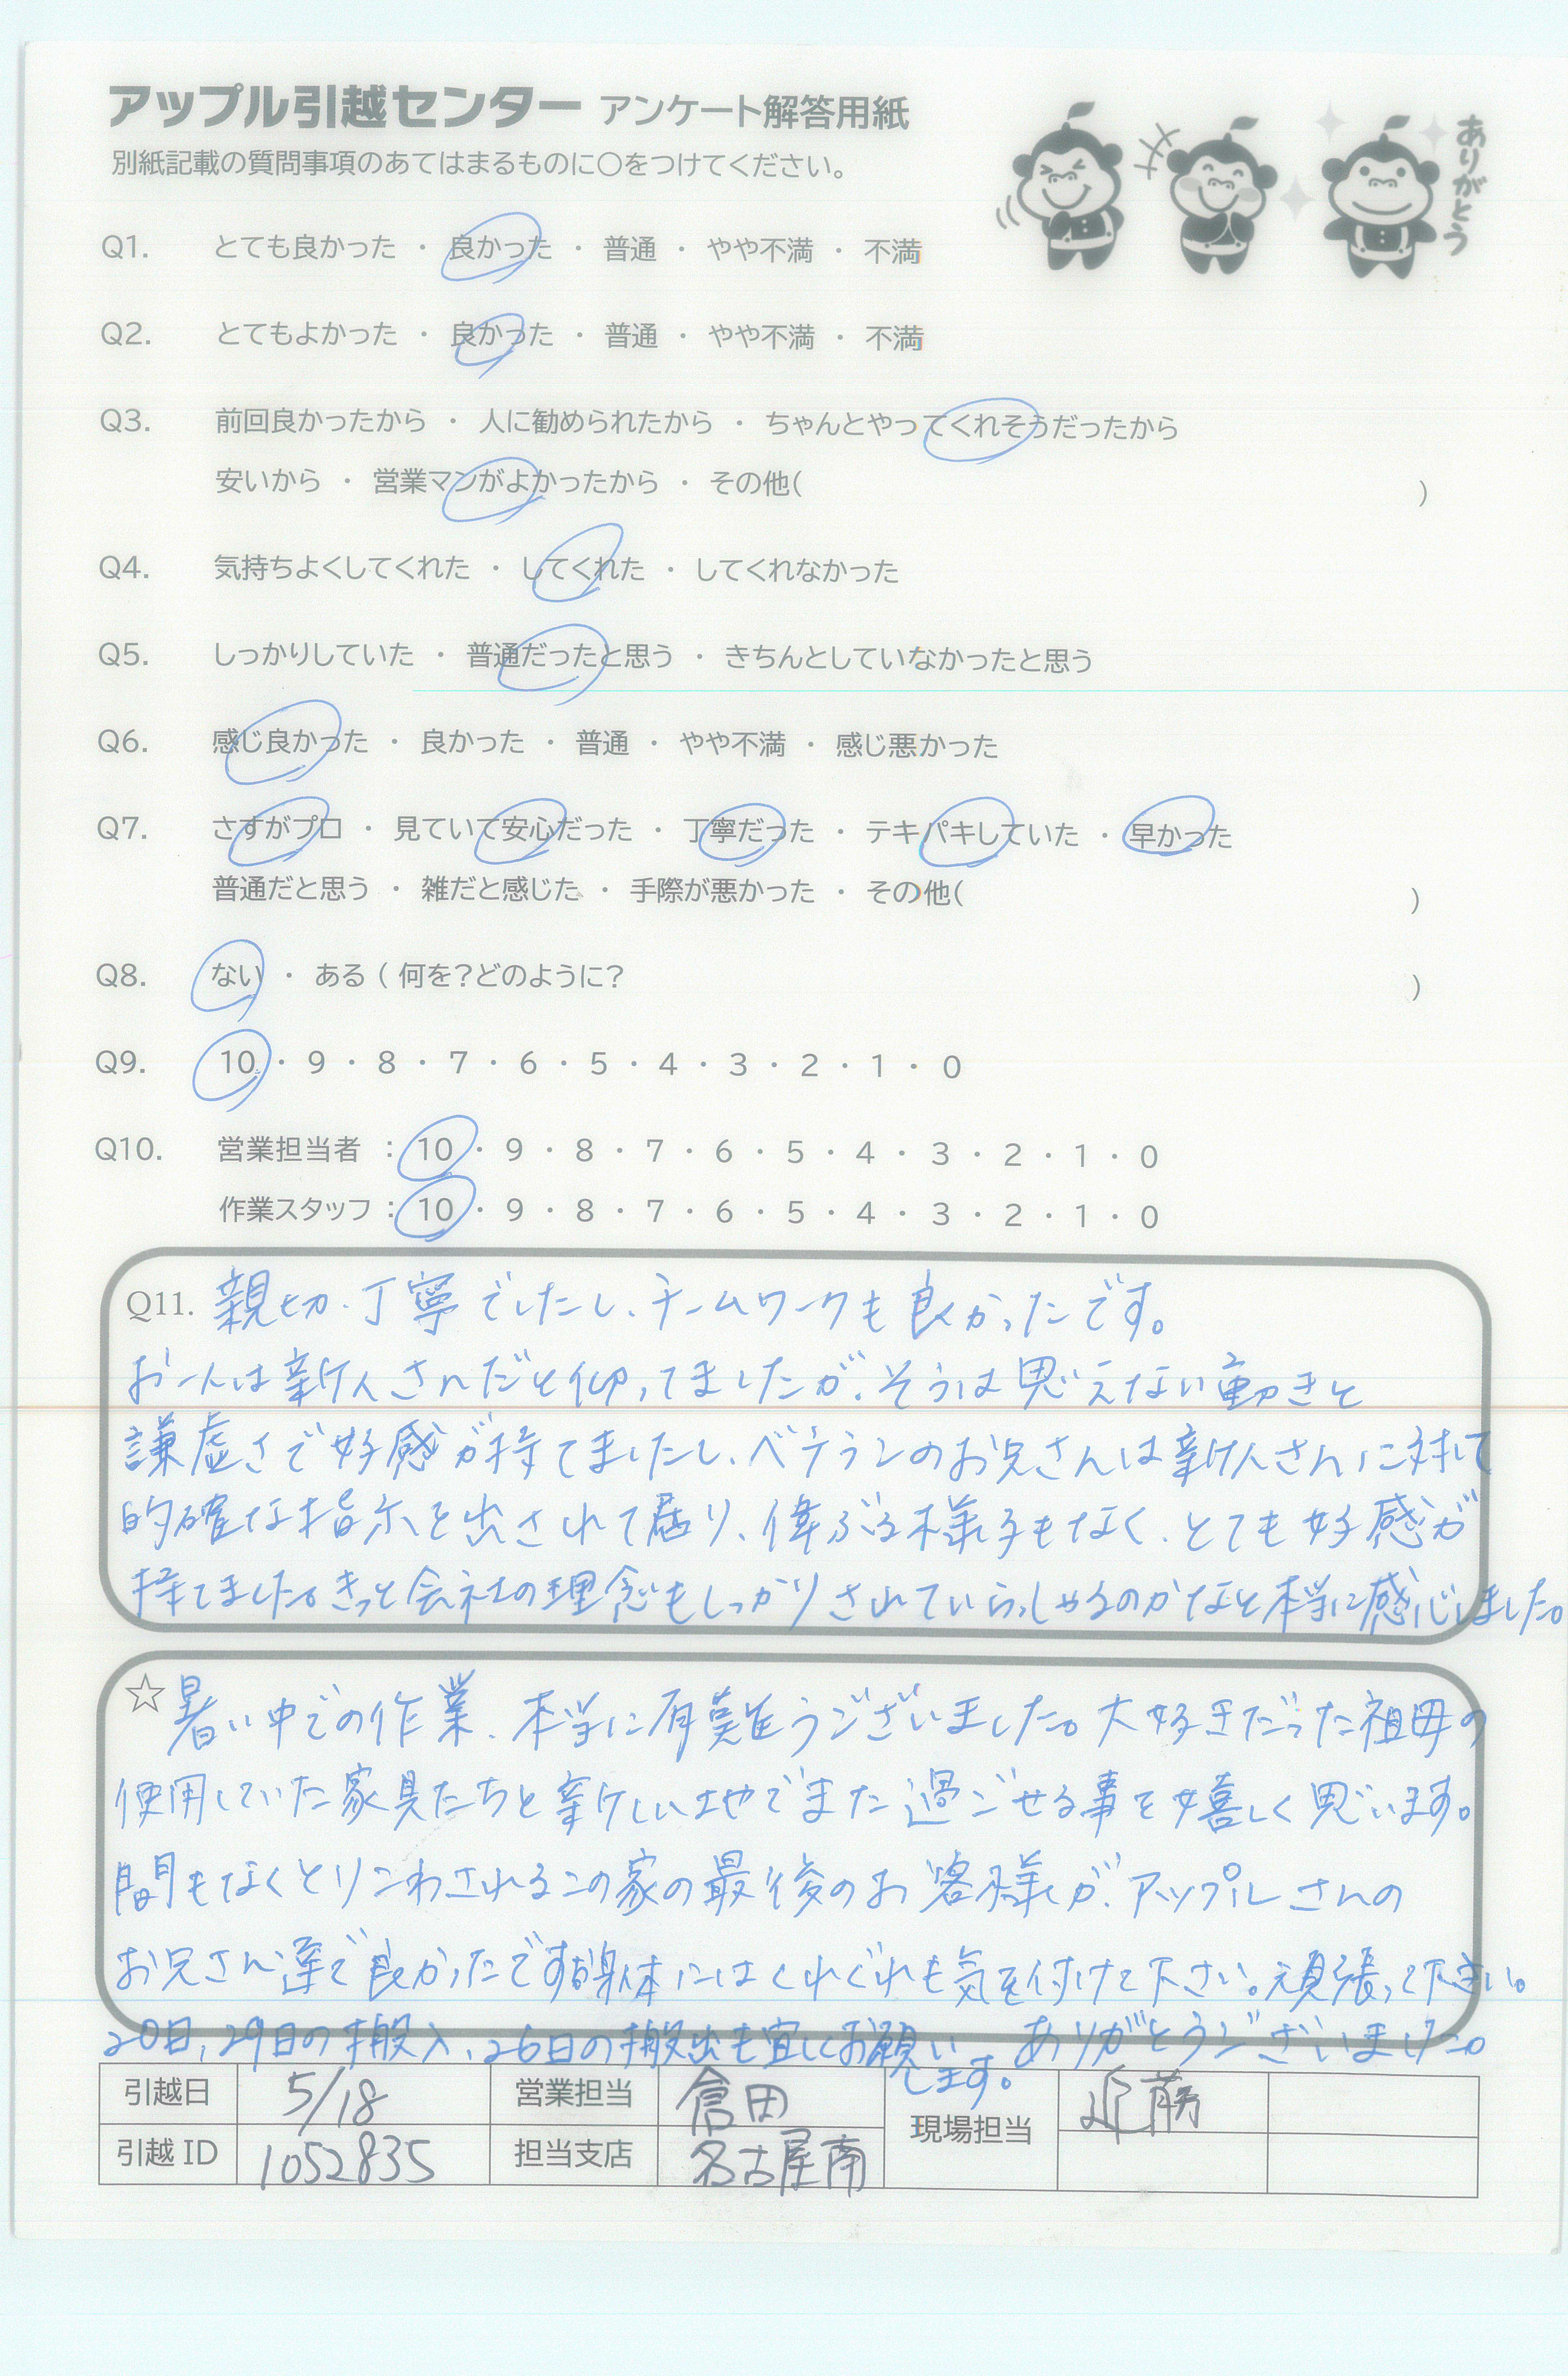 アップル引越センター アンケート解答用紙
別紙記載の質問事項のあてはまるものに〇をつけてください。
ありがとう
Q1. とても良かった ・ 良かった ・ 普通 ・ やや不満 ・ 不満
Q2. とてもよかった ・ 良かった ・ 普通 ・ やや不満 ・ 不満
Q3. 前回良かったから ・ 人に勧められたから ・ ちゃんとやってくれそうだったから
安いから ・ 営業マンがよかったから ・ その他( )
Q4. 気持ちよくしてくれた ・ してくれた ・ してくれなかった
Q5. しっかりしていた ・ 普通だったと思う ・ きちんとしていなかったと思う
Q6. 感じ良かった ・ 良かった ・ 普通 ・ やや不満 ・ 感じ悪かった
Q7. さすがプロ ・ 見ていて安心だった ・ 丁寧だった ・ テキパキしていた ・ 早かった
普通だと思う ・ 雑だと感じた ・ 手際が悪かった ・ その他( )
Q8. ない ・ ある ( 何を？どのように？ )
Q9. 10 ・ 9 ・ 8 ・ 7 ・ 6 ・ 5 ・ 4 ・ 3 ・ 2 ・ 1 ・ 0
Q10. 営業担当者 : 10 ・ 9 ・ 8 ・ 7 ・ 6 ・ 5 ・ 4 ・ 3 ・ 2 ・ 1 ・ 0
作業スタッフ : 10 ・ 9 ・ 8 ・ 7 ・ 6 ・ 5 ・ 4 ・ 3 ・ 2 ・ 1 ・ 0
Q11. 親切、丁寧でしたし、チームワークも良かったです。
お一人は新人さんだと仰ってましたが、そうは思えない動きと
謙虚さで好感が持てましたし、ベテランのお兄さんは新人さんに対して
的確な指示を出されて居り、偉ぶる様子もなく、とても好感が
持てました。きっと会社の理念もしっかりされていらっしゃるのかなと本当に感じました。
☆ 暑い中での作業、本当に有難うございました。大好きだった祖母の
使用していた家具たちと新しい地でまた過ごせる事を嬉しく思います。
間もなくとりこわされるこの家の最後のお客様が、アップルさんの
お兄さん達で良かったです。御身体にはくれぐれも気を付けて下さい。頑張って下さい。
20日、29日の搬入、26日の搬出も宜しくお願いします。 ありがとうございました。
引越日 5/18 営業担当 倉田 現場担当 近藤
引越 ID 1052835 担当支店 名古屋南